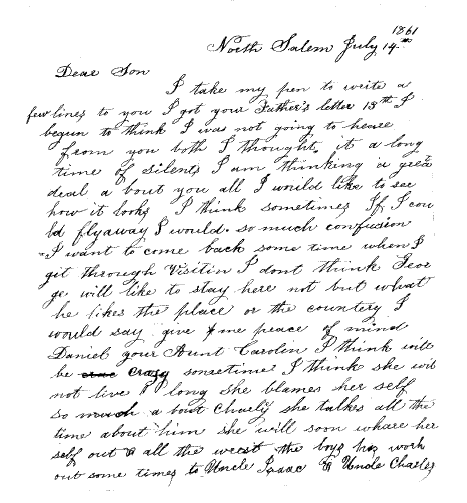 1861
North Salem July 14th
Dear Son
I take my pen to write a
few lines to you I got your Father's letter 13th I
begun to think I was not going to heare
from you both I thought, it a long
time of silents I am thinking a great
deal a bout you all I would like to see
how it looks I think sometimes If I cou
ld flyaway I would. so much confusion
I want to come back some time when I
git through visitin I dont think Geor
ge will like to stay here not but what
he likes the place or the countery I
would say give me peace of mind
Daniel your Aunt Carolin I think will
be crazy sonsetime I think she wil
not live long she blames her self
so much a bout Charly she talkes all the
time about him she will soon whare her
self out & all the werst the boys has work
out some times to Uncle Isaac & Uncle Charles